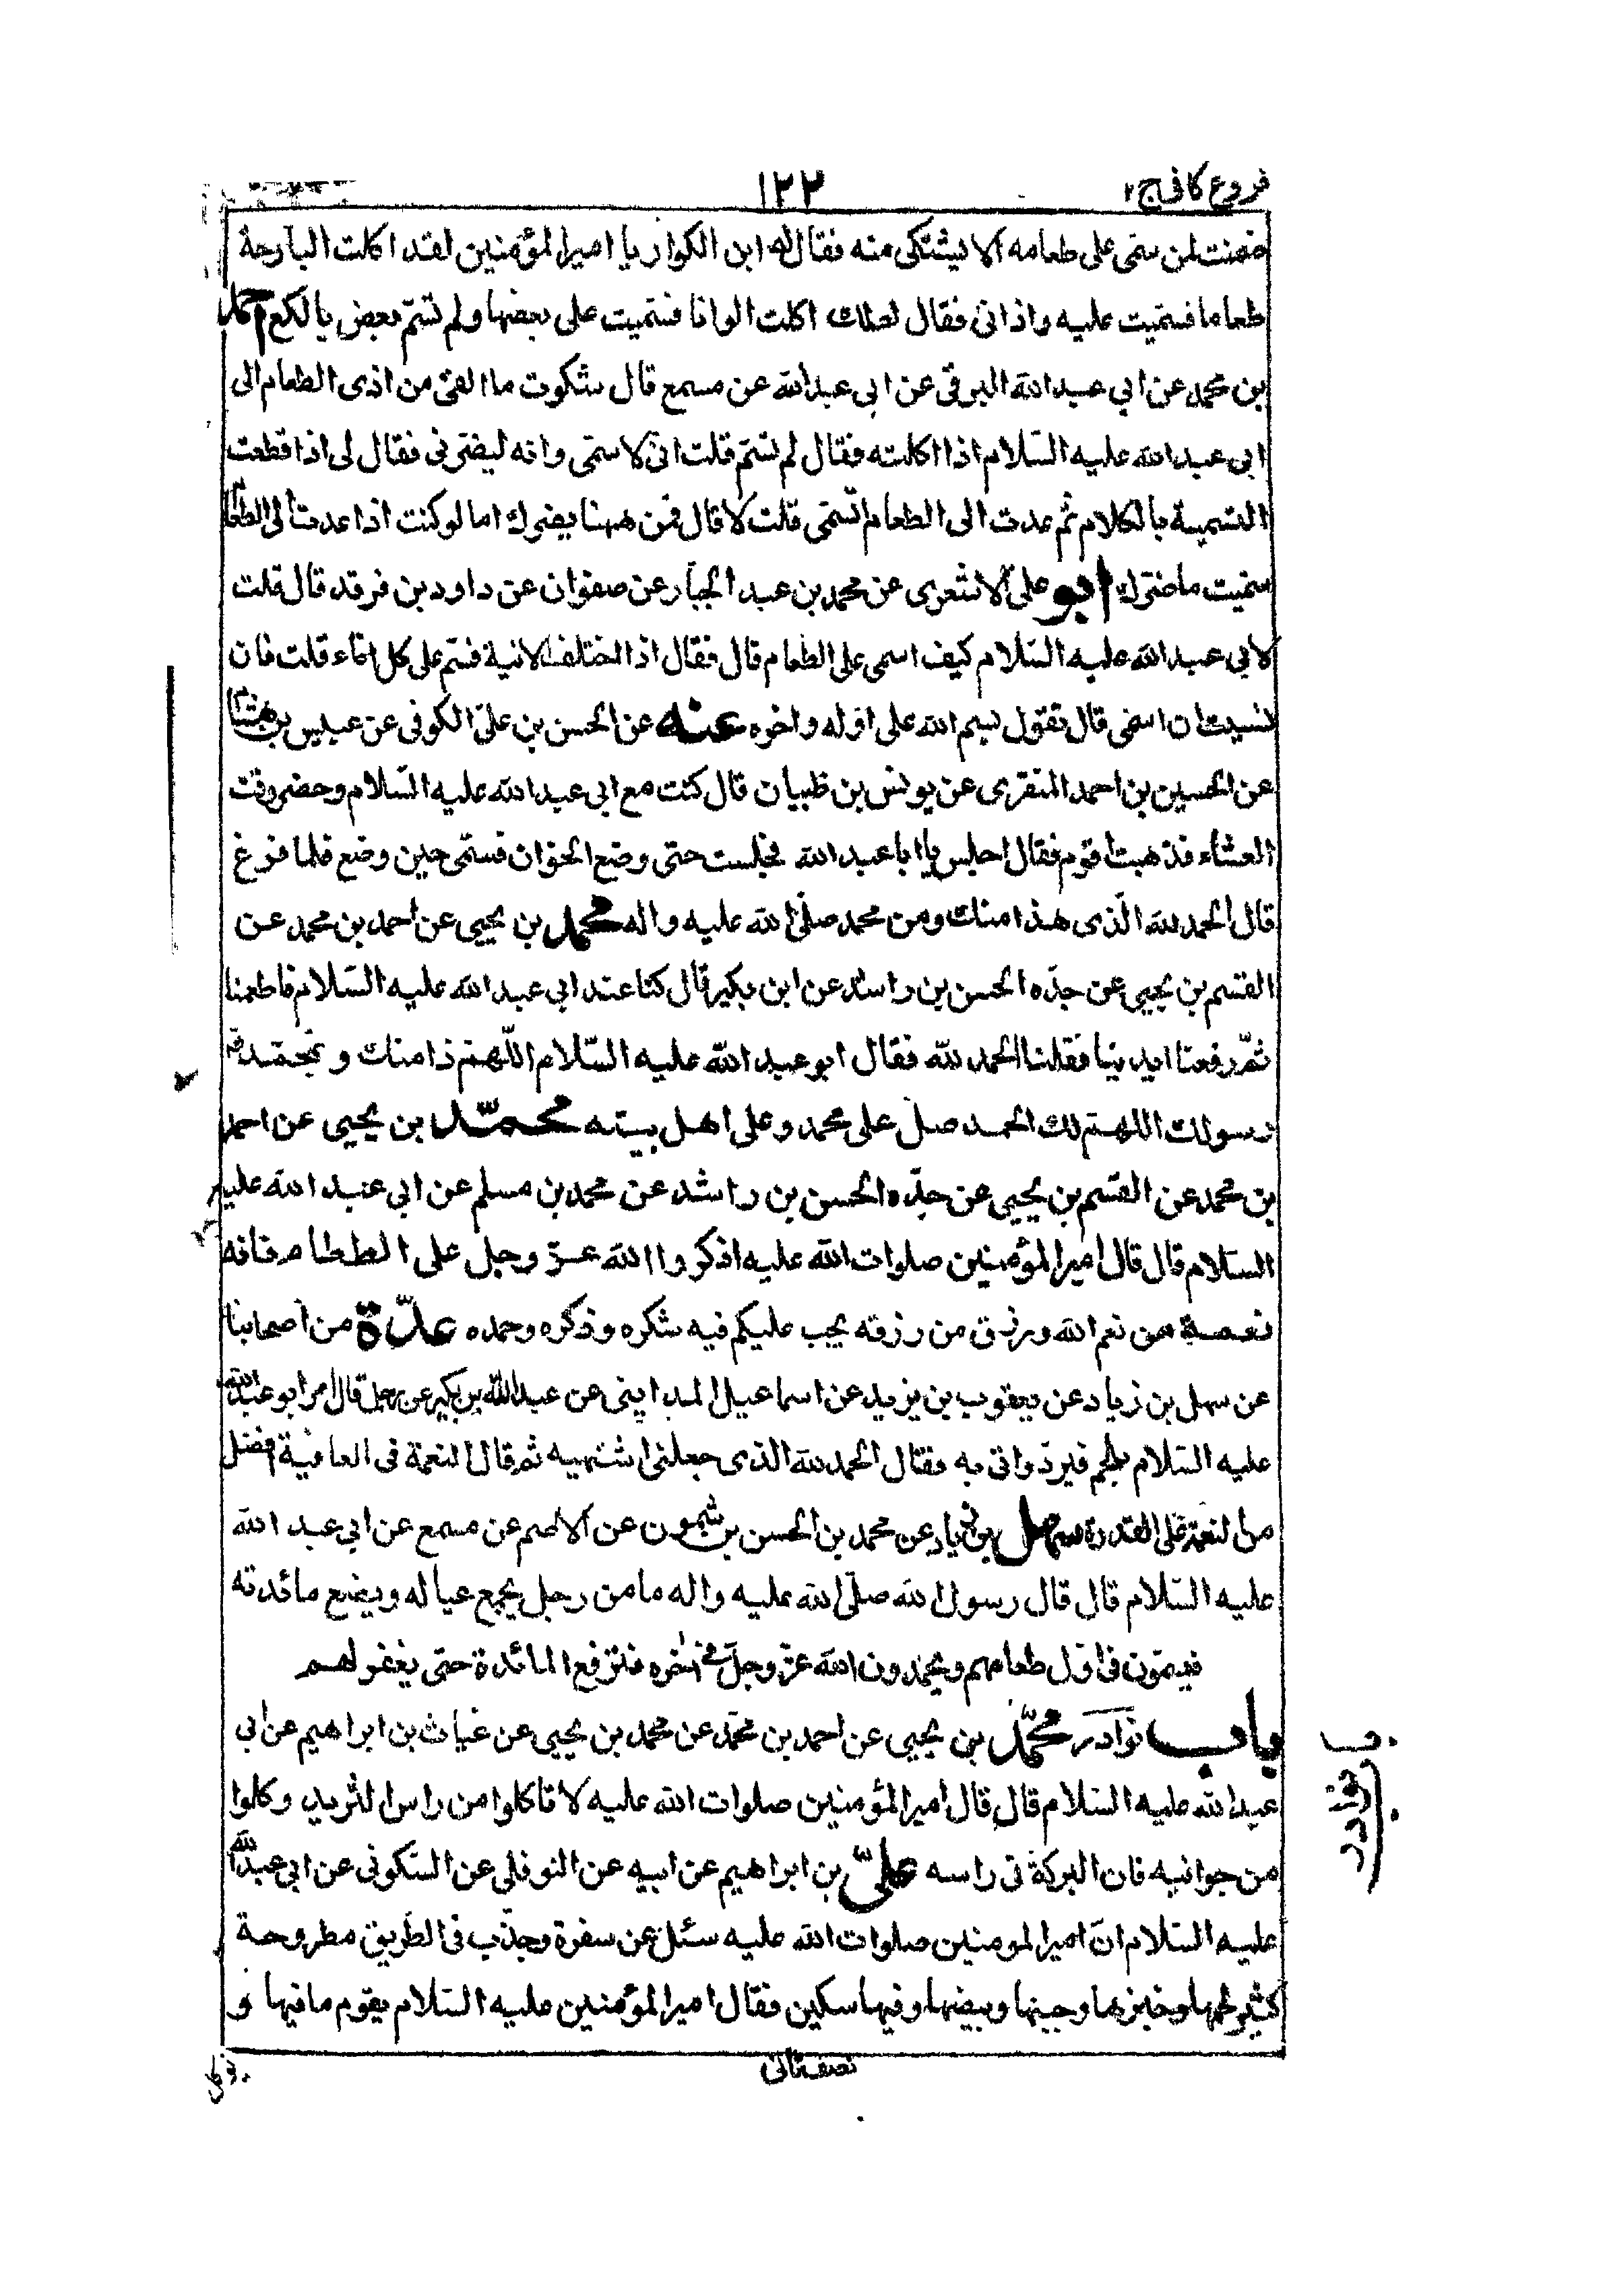 فروع كافى ج٢
١٢٣
ضمنت لمن سمّى على طعامه الا يشتكى منه فقال له ابن الكوار يا امير المؤمنين لقد اكلت البارحة
طعاما فسمّيت عليه واذانى فقال لعلك اكلت الوانا فسمّيت على بعضها ولم تسمّ بعض يا لكع احمد
بن محمد عن ابي عبد الله البرقى عن ابى عبد الله عن مسمع قال شكوت ما القى من اذى الطعام الى
ابى عبد الله عليه السّلام اذا اكلته فقال لم تسمّ قلت انى لاسمّى وانه ليضرّنى فقال لى اذا قطعت
التسمية بالكلام ثم عدت الى الطعام اتسمّى قلت لا قال فمن ههنا يضرك اما لو كنت اذا عدت الى الطعام
سمّيت ما ضرّك ابو على الاشعرى عن محمد بن عبد الجبّار عن صفوان عن داود بن فرقد قال قلت
لابي عبد الله عليه السّلام كيف اسمى على الطعام قال فقال اذا اختلف الانية فسّم على كل اناء قلت فان
نسيت ان اسمّى قال تقول بسم الله على اوله واخره عنه عن الحسن بن علىّ الكوفى عن عبيس بن هشام
عن الحسين بن احمد المنقرى عن يونس بن ظبيان قال كنت مع ابى عبد الله عليه السّلام وحضر وقت
العشاء فذهبت اقوم فقال اجلس يا ابا عبد الله فجلست حتى وضع الخوان فسمّى حين وضع فلما فرغ
قال الحمد لله الّذى هذا منك ومن محمد صلّى الله عليه واله محمد بن يحيى عن احمد بن محمد عن
القسم بن يحيى عن جدّه الحسن بن راشد عن ابن بكير قال كنا عند ابى عبد الله عليه السّلام فاطعمنا
ثمّ رفعنا ايدينا فقلنا الحمد لله فقال ابو عبد الله عليه السّلام اللّهمّ ذا منك وبمحمّد
رسولك اللهم لك الحمد صل على محمد وعلى اهل بيته محمّد بن يحيى عن احمد
بن محمد عن القسم بن يحيى عن جدّه الحسن بن راشد عن محمد بن مسلم عن ابى عبد الله عليه
السّلام قال قال امير المؤمنين صلوات الله عليه اذكروا الله عزّ وجل على الطعام فانه
نعمة من نعم الله ورزق من رزقه يجب عليكم فيه شكره وذكره وحمده عدّة من اصحابنا
عن سهل بن زياد عن يعقوب بن يزيد عن اسماعيل المداينى عن عبد الله بن بكير عن رجل قال امر ابو عبد الله
عليه السّلام بلحم فبرد واتى به فقال الحمد لله الذى جعلنى اشتهيه ثم قال النعمة فى العافية افضل
من النعمة على القدرة سهل بن زياد عن محمد بن الحسن بن شمون عن الاصم عن مسمع عن ابى عبد الله
عليه السّلام قال قال رسول الله صلّى الله عليه واله ما من رجل يجمع عياله ويضع مائدته
فيسمون فى اول طعامهم ويحمدون الله عزّ وجلّ فى اخره فترفع المائدة حتى يغفر لهم
باب نوادر محمّد بن يحيى عن احمد بن محمّد عن محمد بن يحيى عن غياث بن ابراهيم عن ابى
عبد الله عليه السّلام قال قال امير المؤمنين صلوات الله عليه لا تاكلوا من راس الثريد وكلوا
من جوانبه فان البركة فى راسه علىّ بن ابراهيم عن ابيه عن النوفلى عن السّكونى عن ابى عبد الله
عليه السّلام انّ امير المومنين صلوات الله عليه سئل عن سفرة وجدّت فى الطريق مطروحة
كثير لحمها وخبزها وجبنها وبيضها وفيها سكين فقال امير المؤمنين عليه السّلام يقوم ما فيها و
نصف ثانى
ب
نوادر